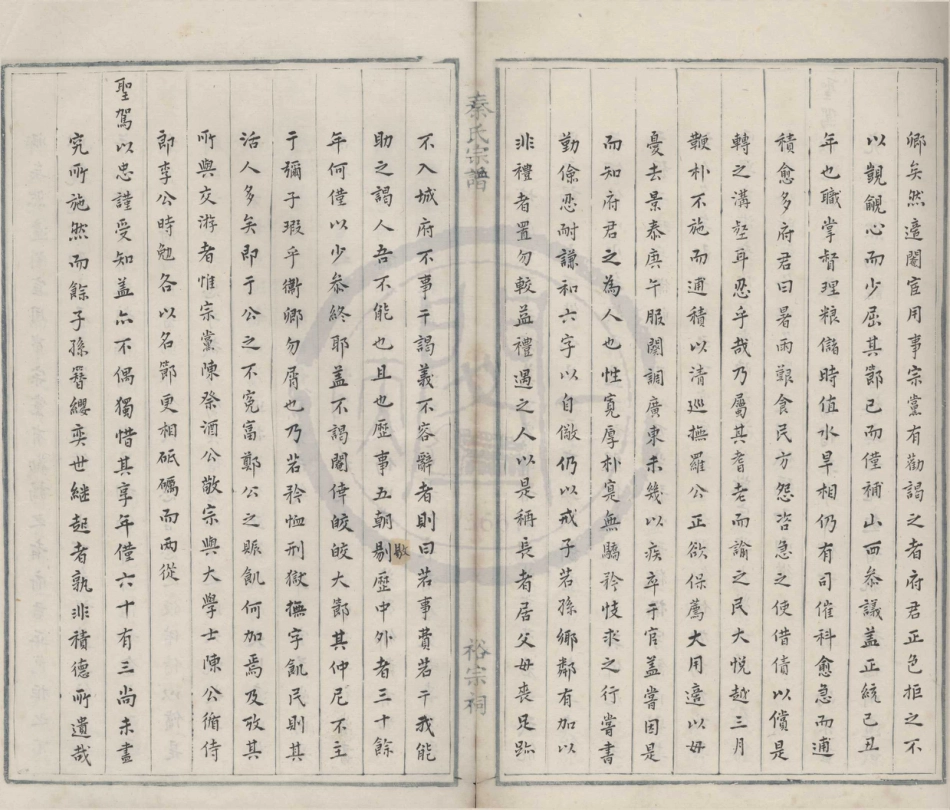 鄉矣然適閹官用事宗黨有勸謁之者府君正色拒之不
以覬覦心而少屈其節已而僅補山西參議蓋正統己丑
年也職掌督理粮儲時值水旱相仍有司催科愈急而逋
積愈多府君曰暑雨艱食民方怨咨急之使借倩以償是
轉之溝壑耳忍乎哉乃屬其耆老而諭之民大悅越三月
鞭朴不施而逋積以清巡撫羅公正欲保薦大用適以母
憂去景泰庚午服闋調廣東未幾以疾卒于官蓋嘗因是
而知府君之為人也性寬厚朴寔無驕矜忮求之行嘗書
勤儉忍耐謙和六字以自儆仍以戒子若孫鄉鄰有加以
非禮者置勿較益禮遇之人以是稱長者居父母喪足跡
秦氏宗譜
裕宗祠
不入城府不事干謁義不容辭者則曰若事費若干我能
助之謁人吾不能也且也歷事五朝剔歷中外者三十餘
敭
年何僅以少參終耶蓋不謁閹倖皎皎大節其仲尼不主
于彌子瑕乎衞卿勿屑也乃若矜恤刑獄撫字飢民則其
活人多矣即于公之不寃富鄭公之賑飢何加焉及攷其
所與交游者惟宗黨陳祭酒公敬宗與大學士陳公循侍
郎李公時勉各以名節更相砥礪而兩從
聖駕以忠謹受知蓋亦不偶獨惜其享年僅六十有三尚未盡
究所施然而餘子孫簪纓奕世継起者孰非積德所遺哉